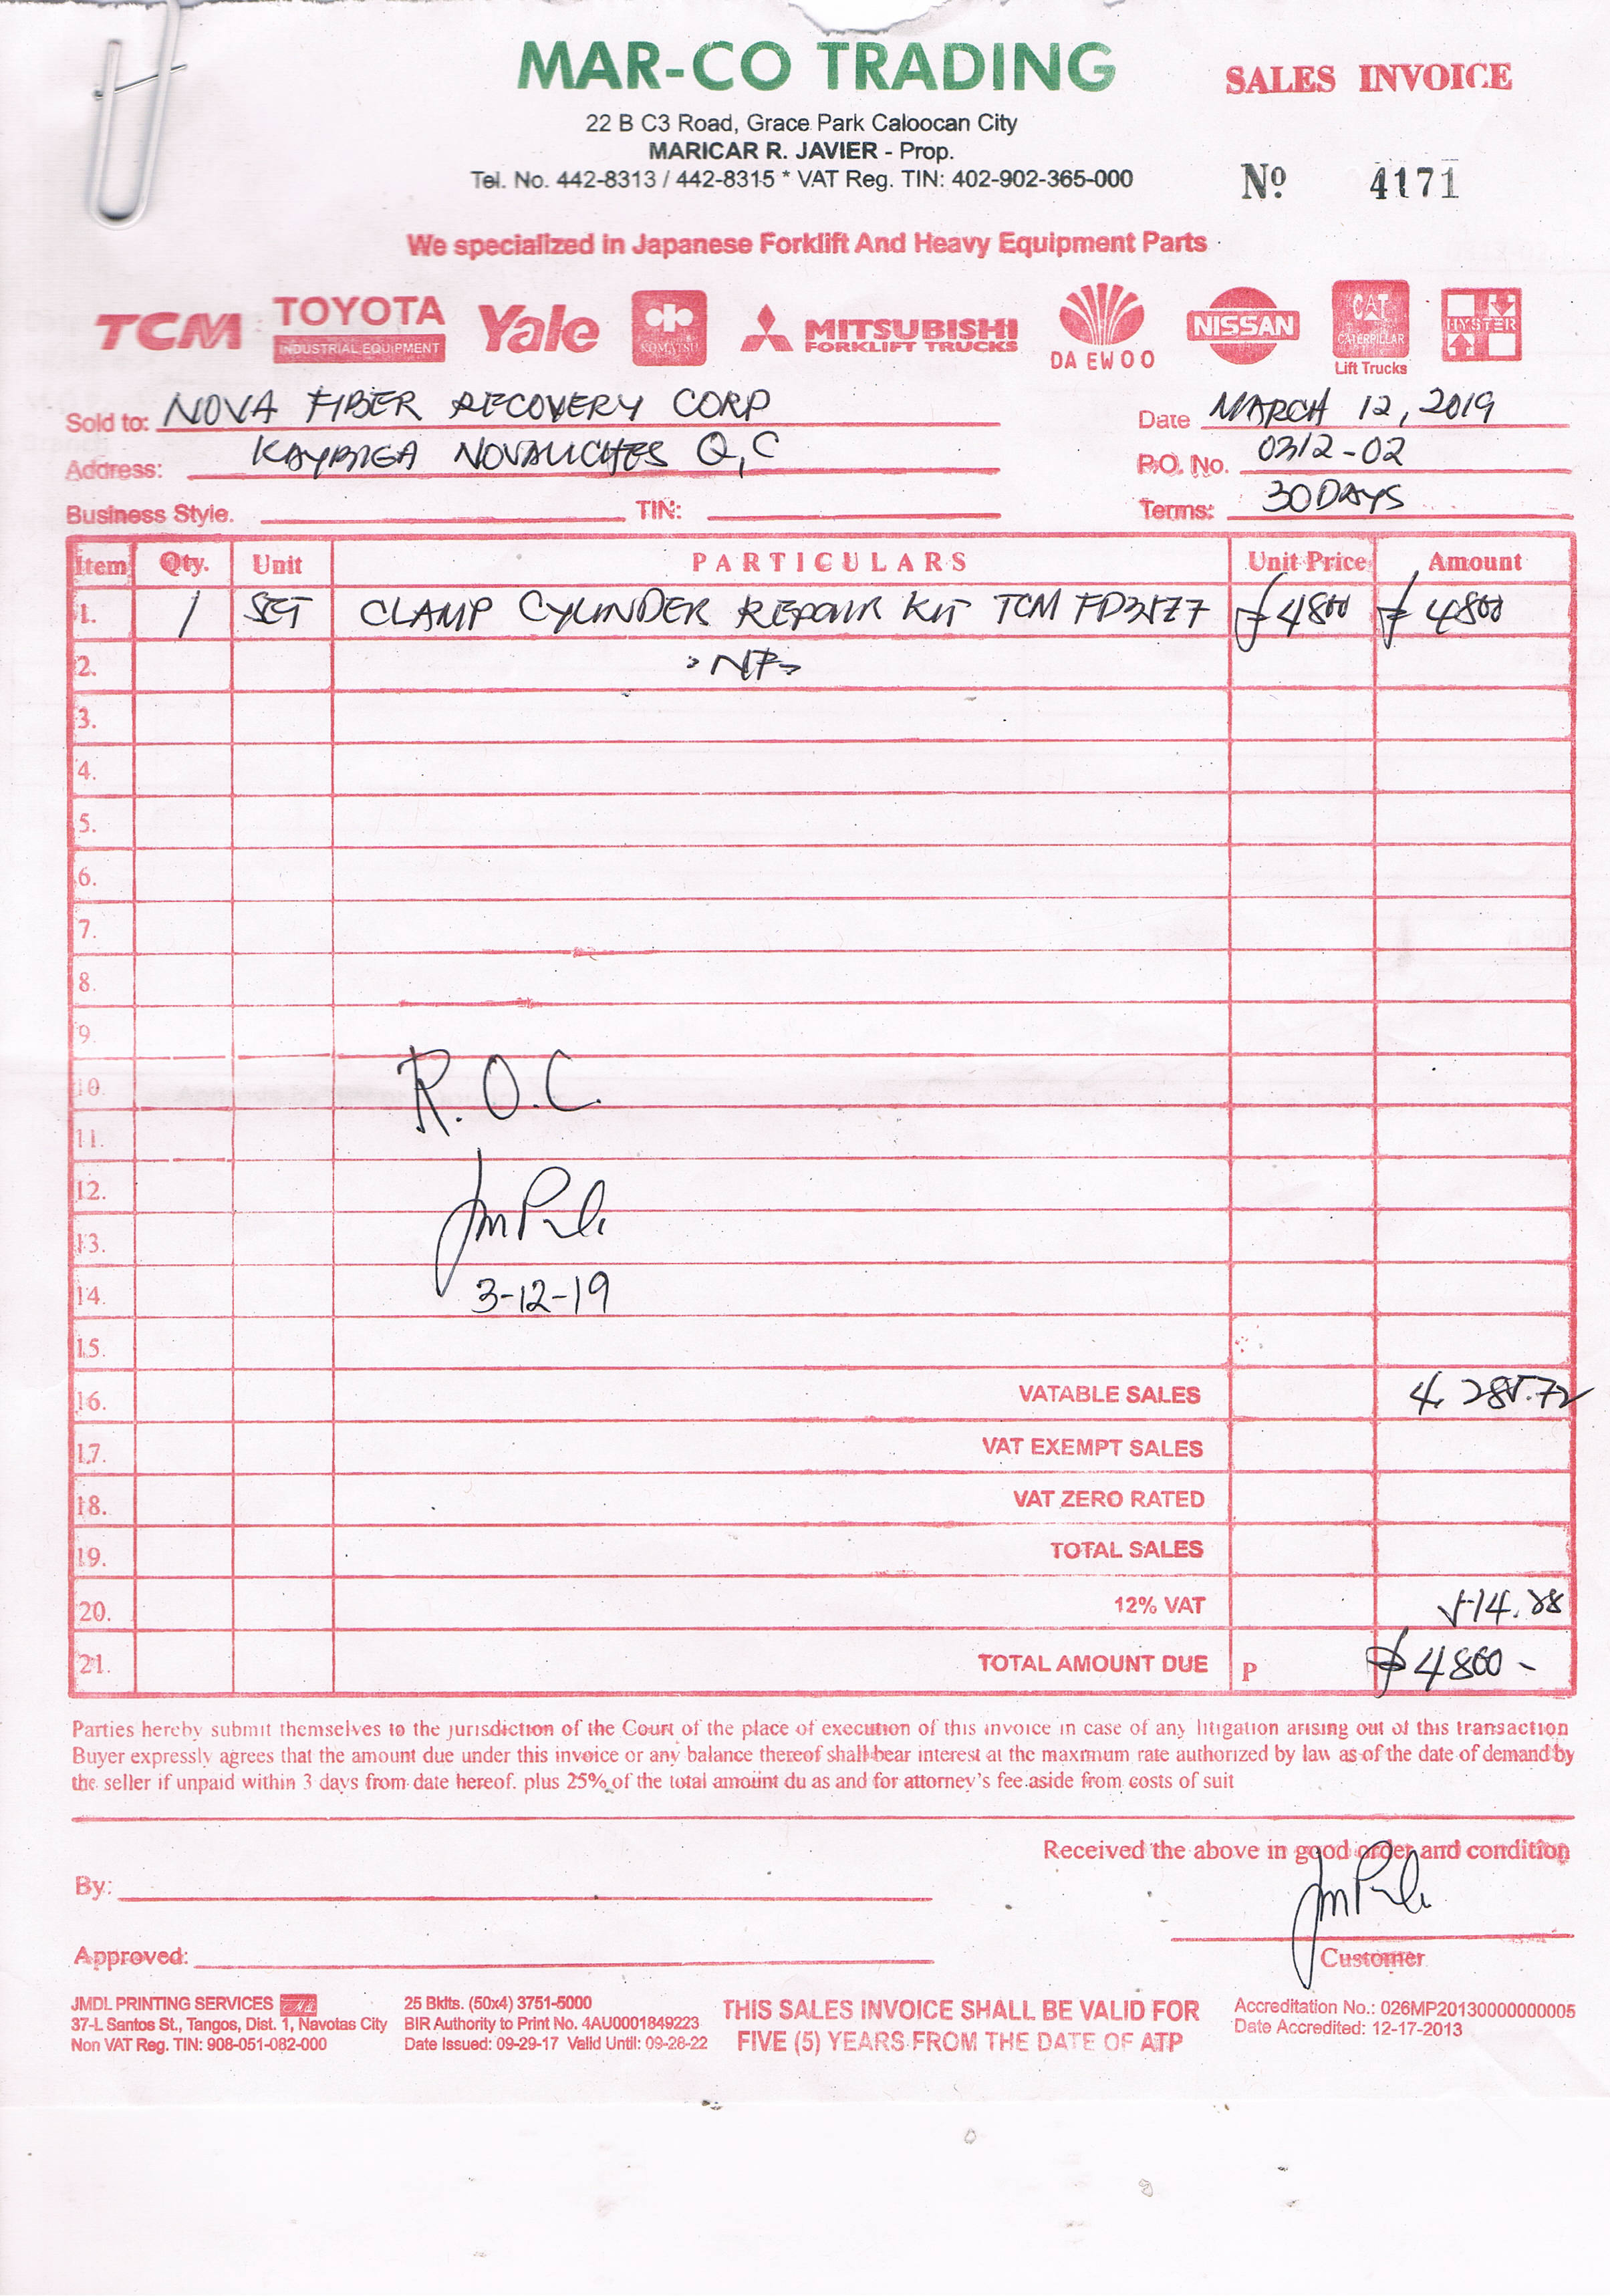 MAR-CO TRADING
SALES INVOICE
22 B C3 Road, Grace Park Caloocan City
MARICAR R. JAVIER - Prop.
Tel. No. 442-8313 / 442-8315 * VAT Reg. TIN: 402-902-365-000
Nº 4171
We specialized in Japanese Forklift And Heavy Equipment Parts
TCM TOYOTA INDUSTRIAL EQUIPMENT Yale KOMATSU MITSUBISHI FORKLIFT TRUCKS DAEWOO NISSAN CAT CATERPILLAR Lift Trucks HYSTER
Sold to: NOVA FIBER RECOVERY CORP Date MARCH 12, 2019
Address: Q,C P.O. No. 0312-02
Business Style. TIN: Terms: 30 DAYS
Item Qty. Unit PARTICULARS Unit Price Amount
1. 1 SET CLAMP CYLINDER REPAIR KIT TCM ₱4800 ₱4800
2.
3.
4.
5.
6.
7.
8.
9.
10. R.O.C.
11.
12.
13.
14. 3-12-19
15.
16. VATABLE SALES 4,285.72
17. VAT EXEMPT SALES
18. VAT ZERO RATED
19. TOTAL SALES
20. 12% VAT
21. TOTAL AMOUNT DUE P ₱4800-
Parties hereby submit themselves to the jurisdiction of the Court of the place of execution of this invoice in case of any litigation arising out of this transaction
Buyer expressly agrees that the amount due under this invoice or any balance thereof shall bear interest at the maxmum rate authorized by law as of the date of demand by
the seller if unpaid within 3 days from date hereof. plus 25% of the total amount du as and for attorney's fee aside from costs of suit
Received the above in good order and condition
By:
Approved:
Customer
JMDL PRINTING SERVICES
37-L Santos St., Tangos, Dist. 1, Navotas City
Non VAT Reg. TIN: 908-051-082-000
25 Bklts. (50x4) 3751-5000
BIR Authority to Print No. 4AU0001849223
Date Issued: 09-29-17 Valid Until: 09-28-22
THIS SALES INVOICE SHALL BE VALID FOR
FIVE (5) YEARS FROM THE DATE OF ATP
Accreditation No.: 026MP20130000000005
Date Accredited: 12-17-2013